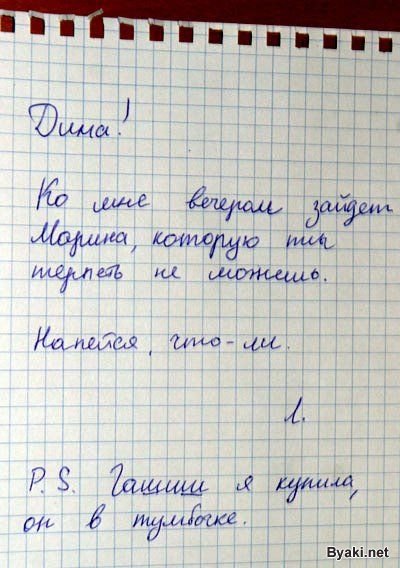 Дима!
Ко мне вечером зайдет
Марина, которую ты
терпеть не можешь.
Напейся, что-ли.
Л.
P.S. Гашиш я купила,
он в тумбочке.
Byaki.net